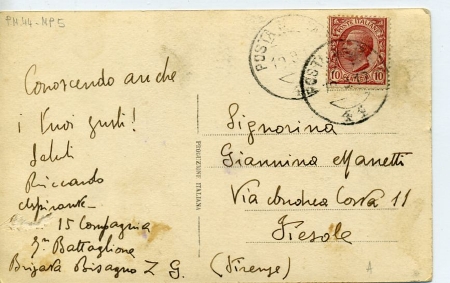 PM.44-MP5
Conoscendo anche
i Tuoi gusti!
Saluti
Riccardo
Aspirante
15 Compagnia
3ª Battaglione
Brigata Bisagno Z G.
PRODUZIONE ITALIANA
POSTA
POSTA
44
POSTE ITALIANE
10 10
Signorina
Giannina Manetti
Via Andrea Costa 11
Fiesole
(Firenze)
A